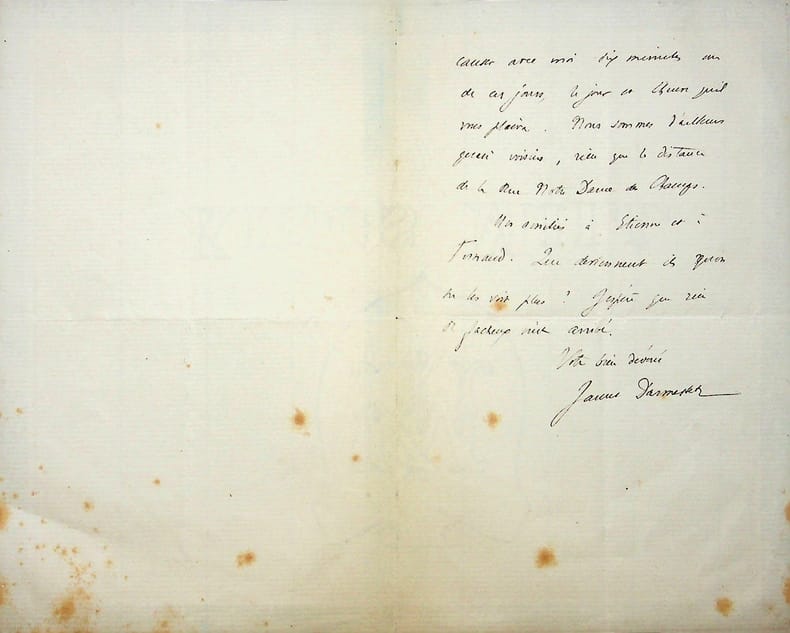 causer avec moi dix minutes un
de ces jours, le jour et l'heure qu'il
vous plaira. Nous sommes d'ailleurs
quasi voisins, rien que la distance
de la Rue Notre Dame des Champs.
Mes amitiés à Etienne et à
Fernand. Que deviennent ils qu'on
ne les voit plus ? J'espère que rien
de fâcheux n'est arrivé.
Votre bien dévoué
James Darmesteter